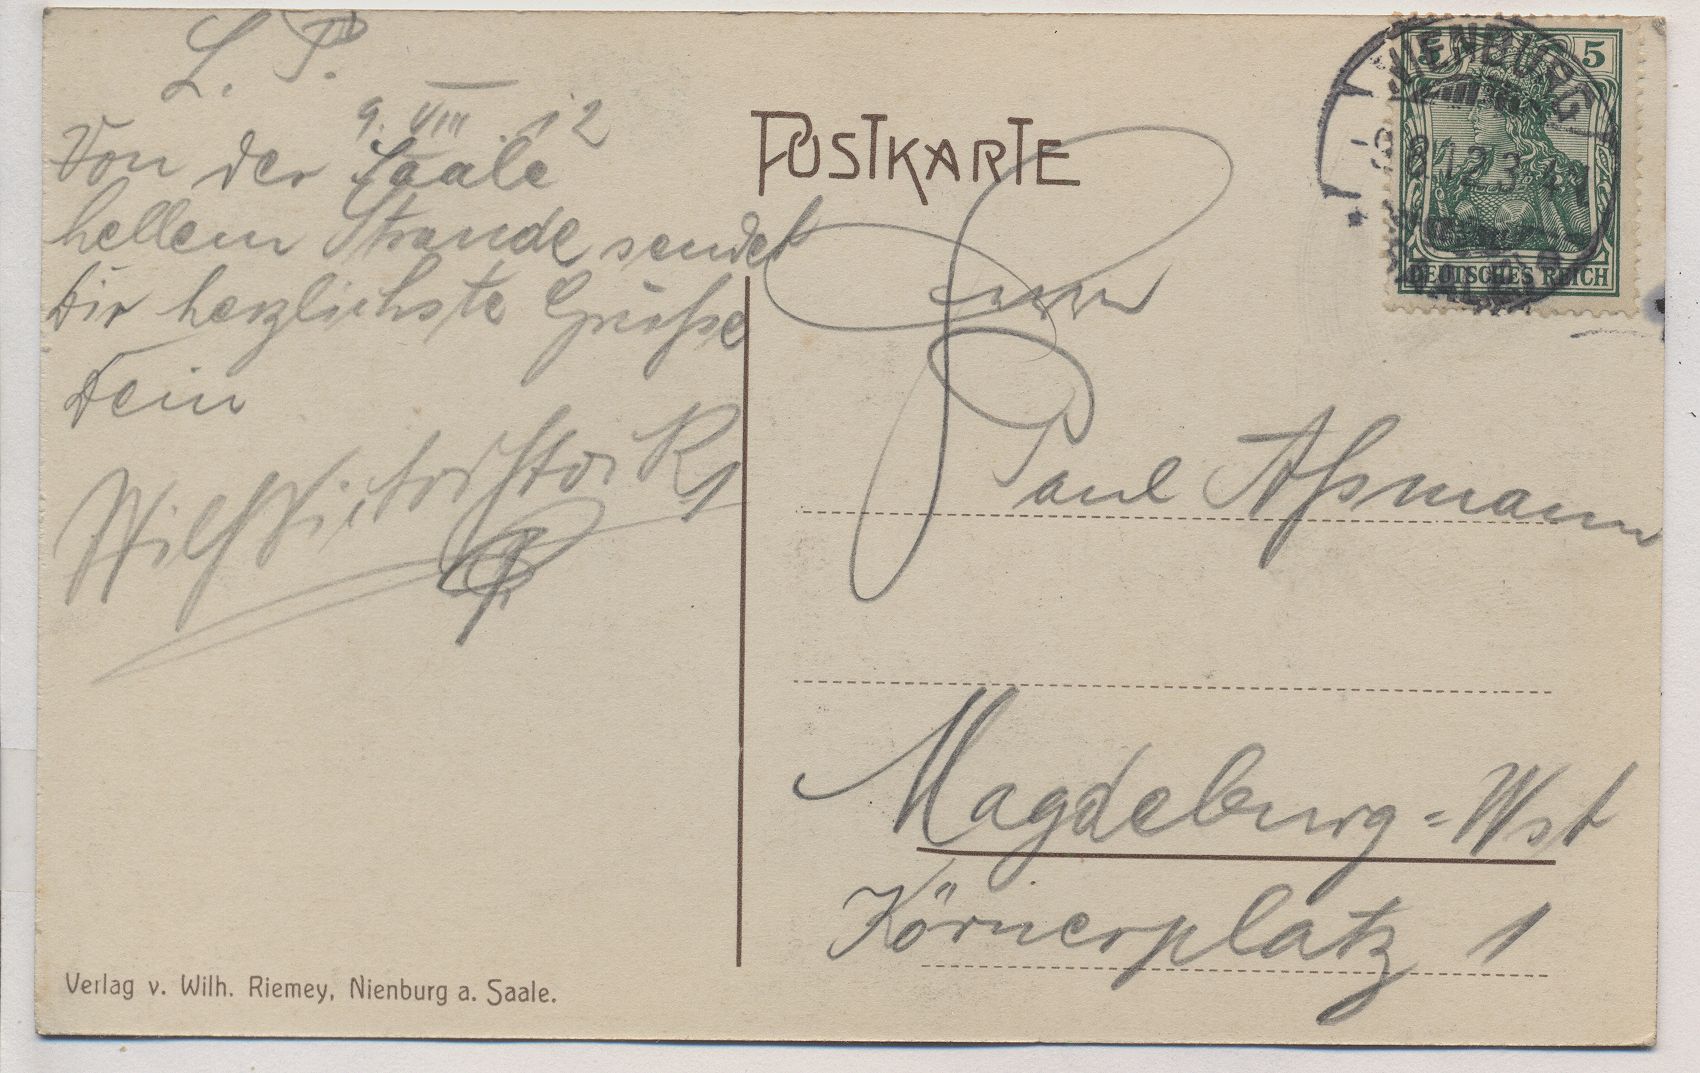 L. P.
9. VIII. 12
Von der Saale
hellem Strande sendet
Dir herzlichste Grüsse
Dein
POSTKARTE
Herrn
Paul Aßmann
Magdeburg=Wst
Körnerplatz 1
NIENBURG
9.8.12.3-4N
5 5
DEUTSCHES REICH
Verlag v. Wilh. Riemey, Nienburg a. Saale.